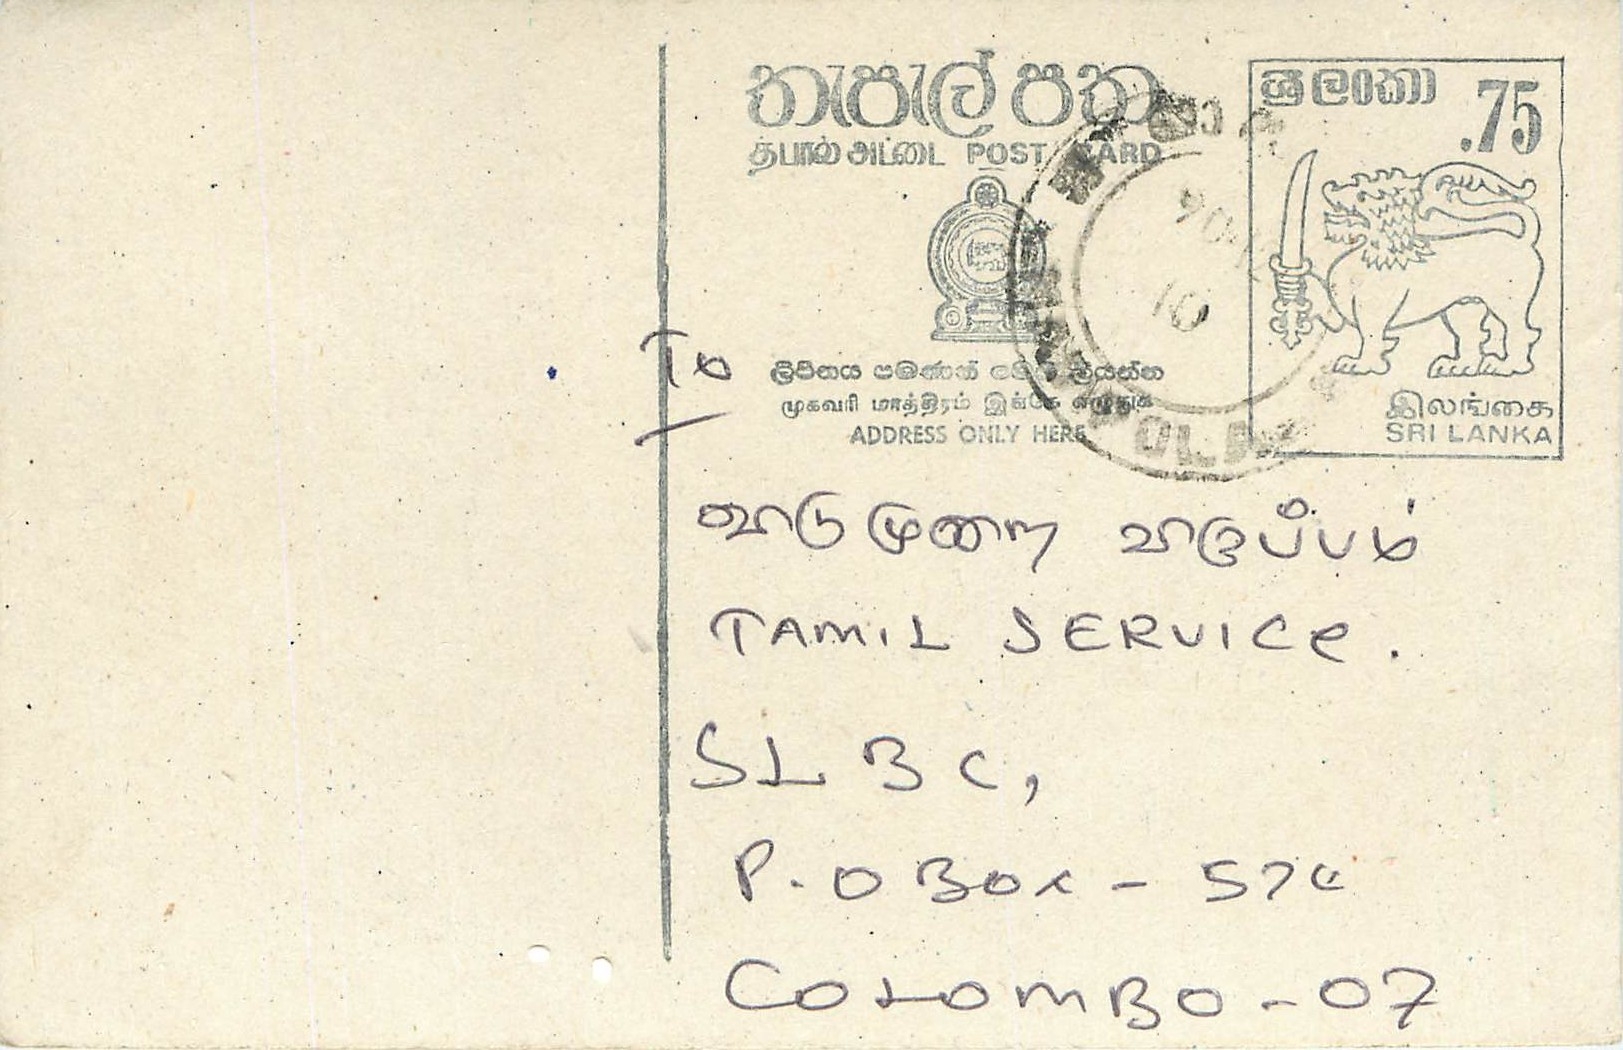 තැපැල් පත
தபால் அட்டை POST CARD
ශ්‍රී ලංකා .75
இலங்கை
SRI LANKA
ලිපිනය පමණක් මෙහි ලියන්න
முகவரி மாத்திரம் இங்கே எழுதுக
ADDRESS ONLY HERE
To
விடுமுறை விருப்பம்
TAMIL SERVICe.
SLBC,
P.O Box - 574
COLOMBO - 07